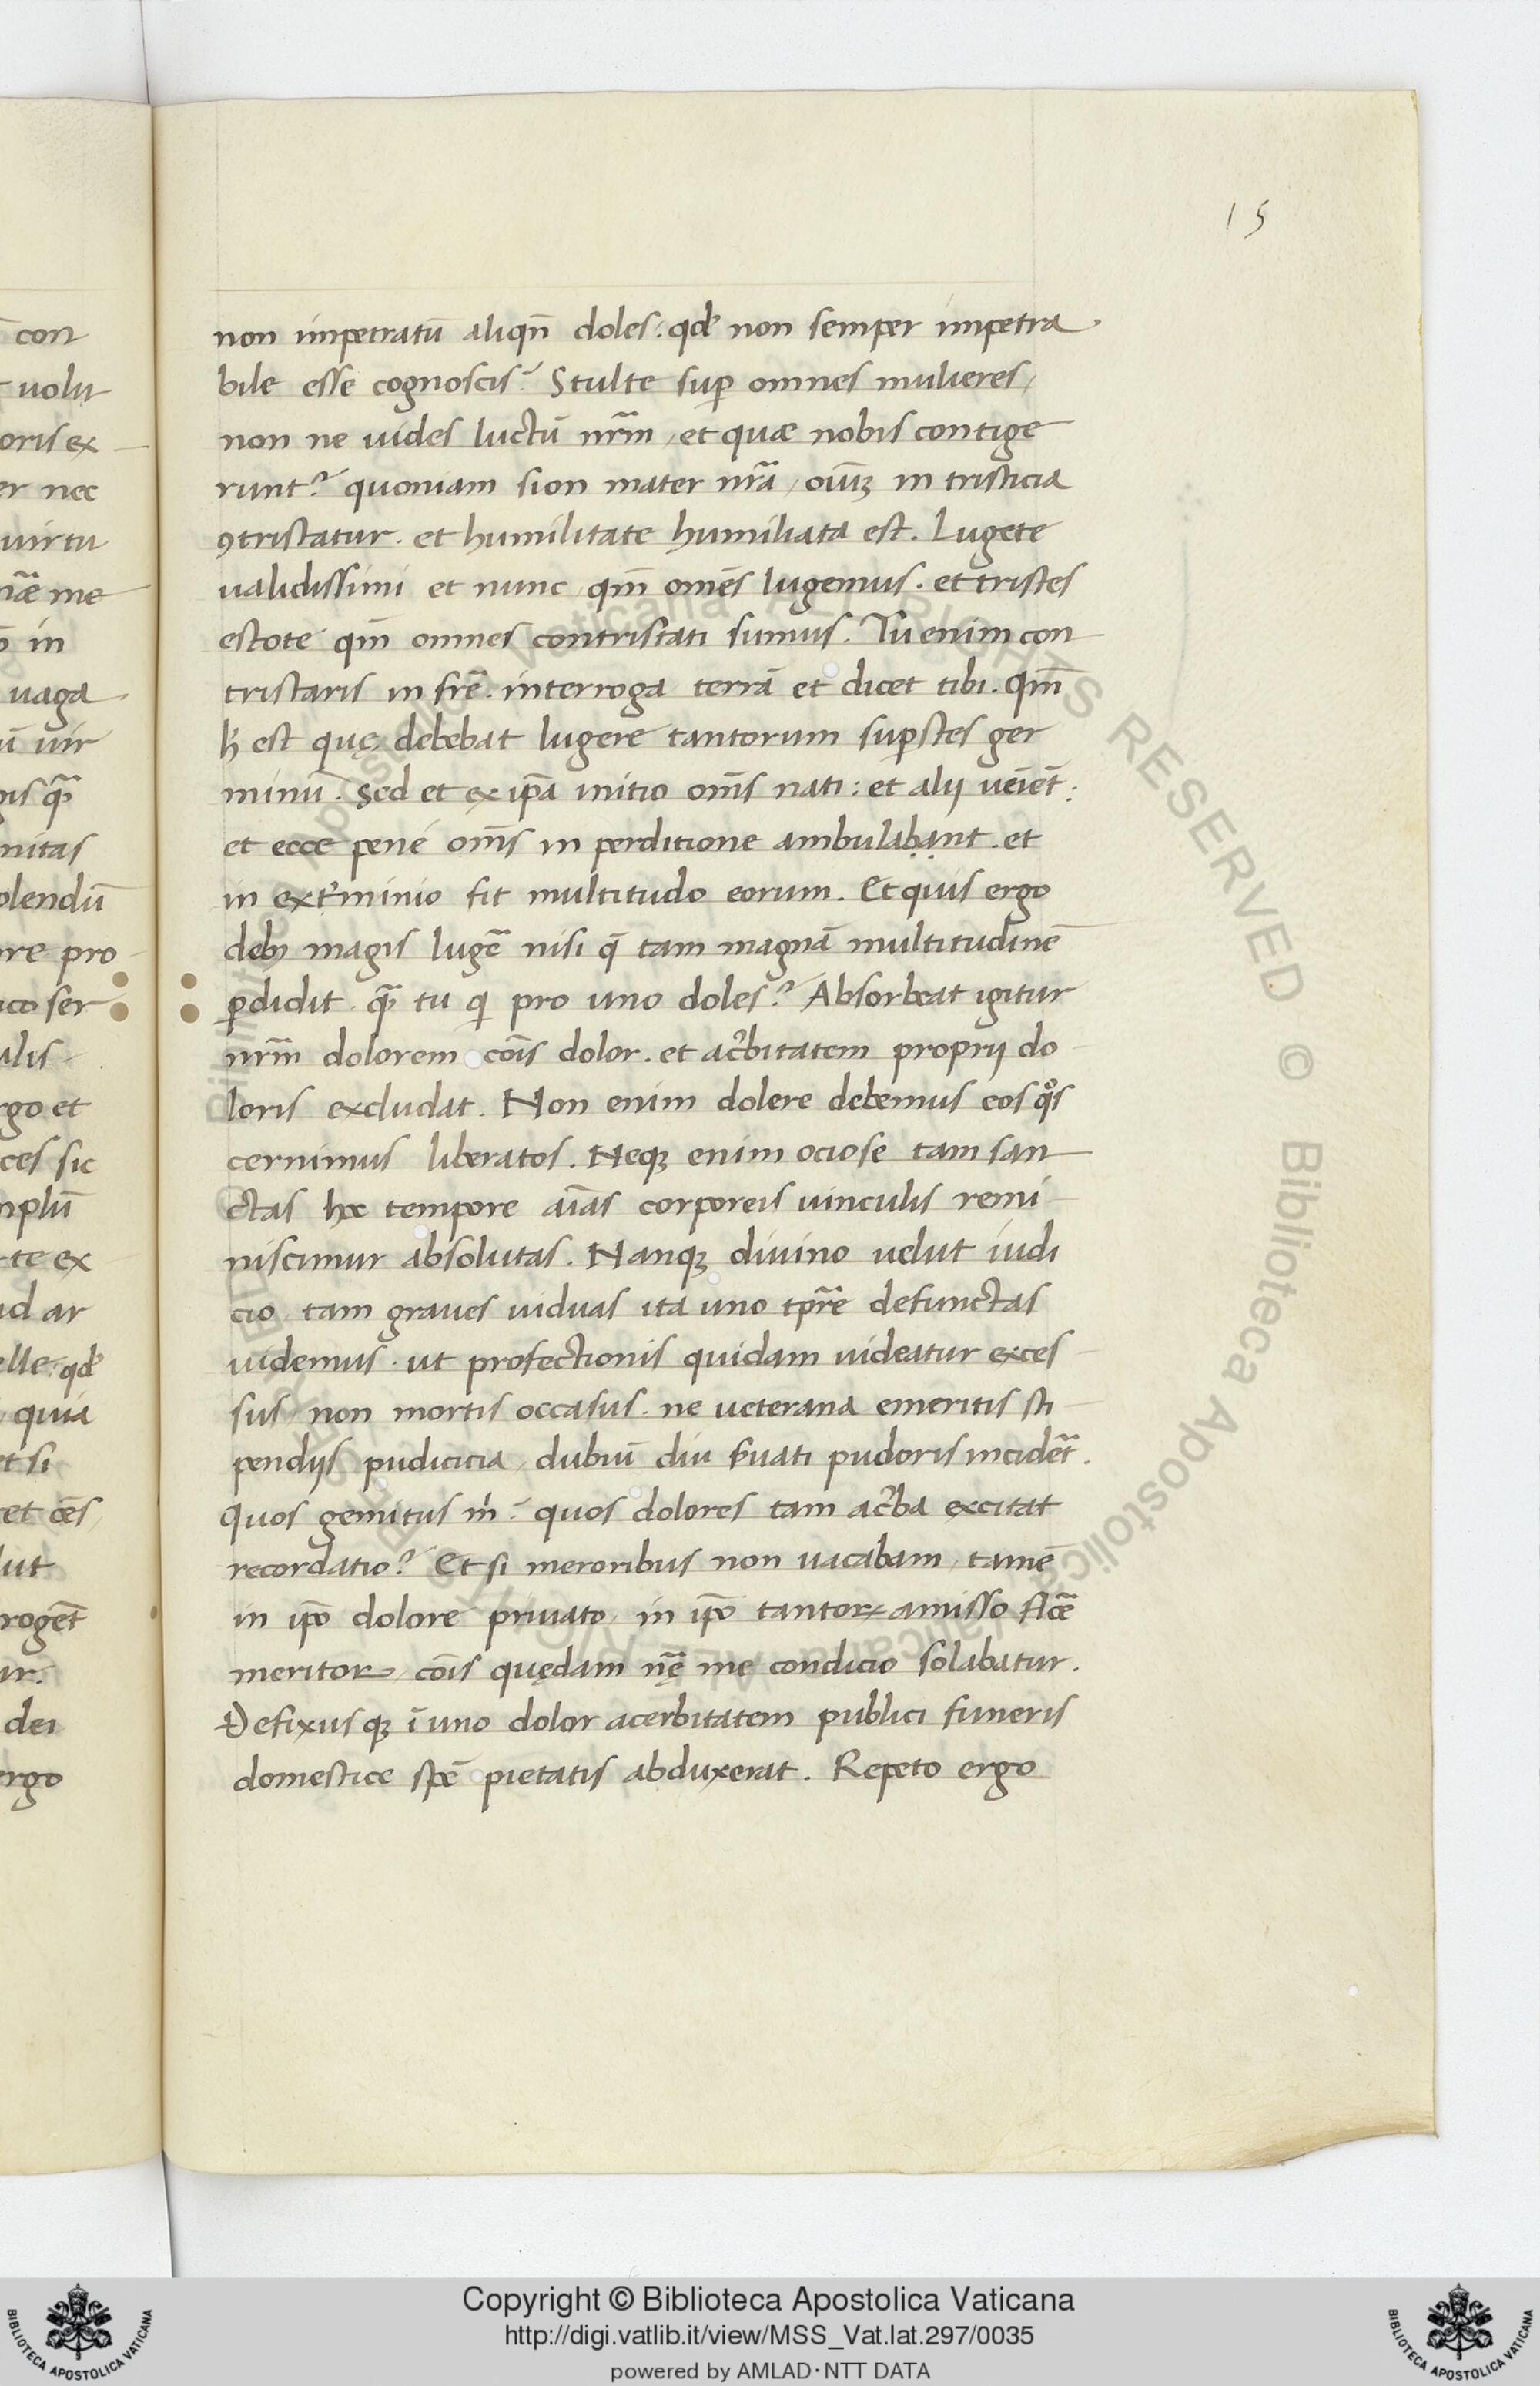 15
non impetratū aliqn̄ doles: qd̕ non semper impetra
bile esse cognoscis? Stulte sup̲ omnes mulieres,
non ne uides luctū nr̄m, et quæ nobis contige
runt? quoniam sion mater nr̄a, oīuꝫ in tristicia
ꝯtristatur. et humilitate humiliata est. Lugete
ualidissimi et nunc qm̄ omēs lugemus. et tristes
estote qm̄ omnes contristati sumus. Tu enim con
tristaris in fr̄e. interroga terrā et dicet tibi. qm̄
h̕ est quę debebat lugere tantorum sup̲stes ger
minū. Sed et ex ip̄a initio om̄s nati: et alij ueiēt:
et ecce pene om̄s in perditione ambulabant. et
in ext̕minio fit multitudo eorum. Et quis ergo
debꝫ magis lugē nisi q̄ tam magnā multitudinē
ꝑdidit. qᷓ tu qi pro uno doles? Absorbeat igitur
nr̄m dolorem cōis dolor. et ac̕bitatem proprij do
loris excludat. Non enim dolere debemus eos qͦs
cernimus liberatos. Neqꝫ enim ociose tam san
ctas hoc tempore aīas corporeis uinculis remi
niscimur absolutas. Nanqꝫ diuino uelut iudi
cio tam graues uiduas ita uno tp̄re defunctas
uidemus. ut profectionis quidam uideatur exces
sus, non mortis occasus. ne ueterana emeritis sti
pendijs pudicicia, dubiū diu ẜuati pudoris incidēt.
Quos gemitus m̕: quos dolores tam ac̕ba excitat
recordatio? Et si meroribus non uacabam, tamē
in ip̄o dolore priuato, in ip̄o tantoꝝ amisso flōē
meritoꝝ, cōis quędam nę̄ me condicio solabatur.
Defixus qꝫ ī uno dolor acerbitatem publici funeris
domestice sp̄e pietatis abduxerat. Repeto ergo
con
uolu
oris ex
er nec
uirtu
me
in
uaga
uir
gis qᷓ
nitas
olendū
re pro
ico ser
alis
rgo et
ces sic
mplū
te ex
ad ar
elle: qd̕
quia
et si
et cēs
lut
rogēt
ur.
dei
ergo
Copyright © Biblioteca Apostolica Vaticana
http://digi.vatlib.it/view/MSS_Vat.lat.297/0035
powered by AMLAD·NTT DATA
BIBLIOTECA APOSTOLICA VATICANA
BIBLIOTECA APOSTOLICA VATICANA
Biblioteca Apostolica Vaticana ALL RIGHTS RESERVED © Biblioteca Apostolica Vaticana ALL RIGHTS RESERVED ©